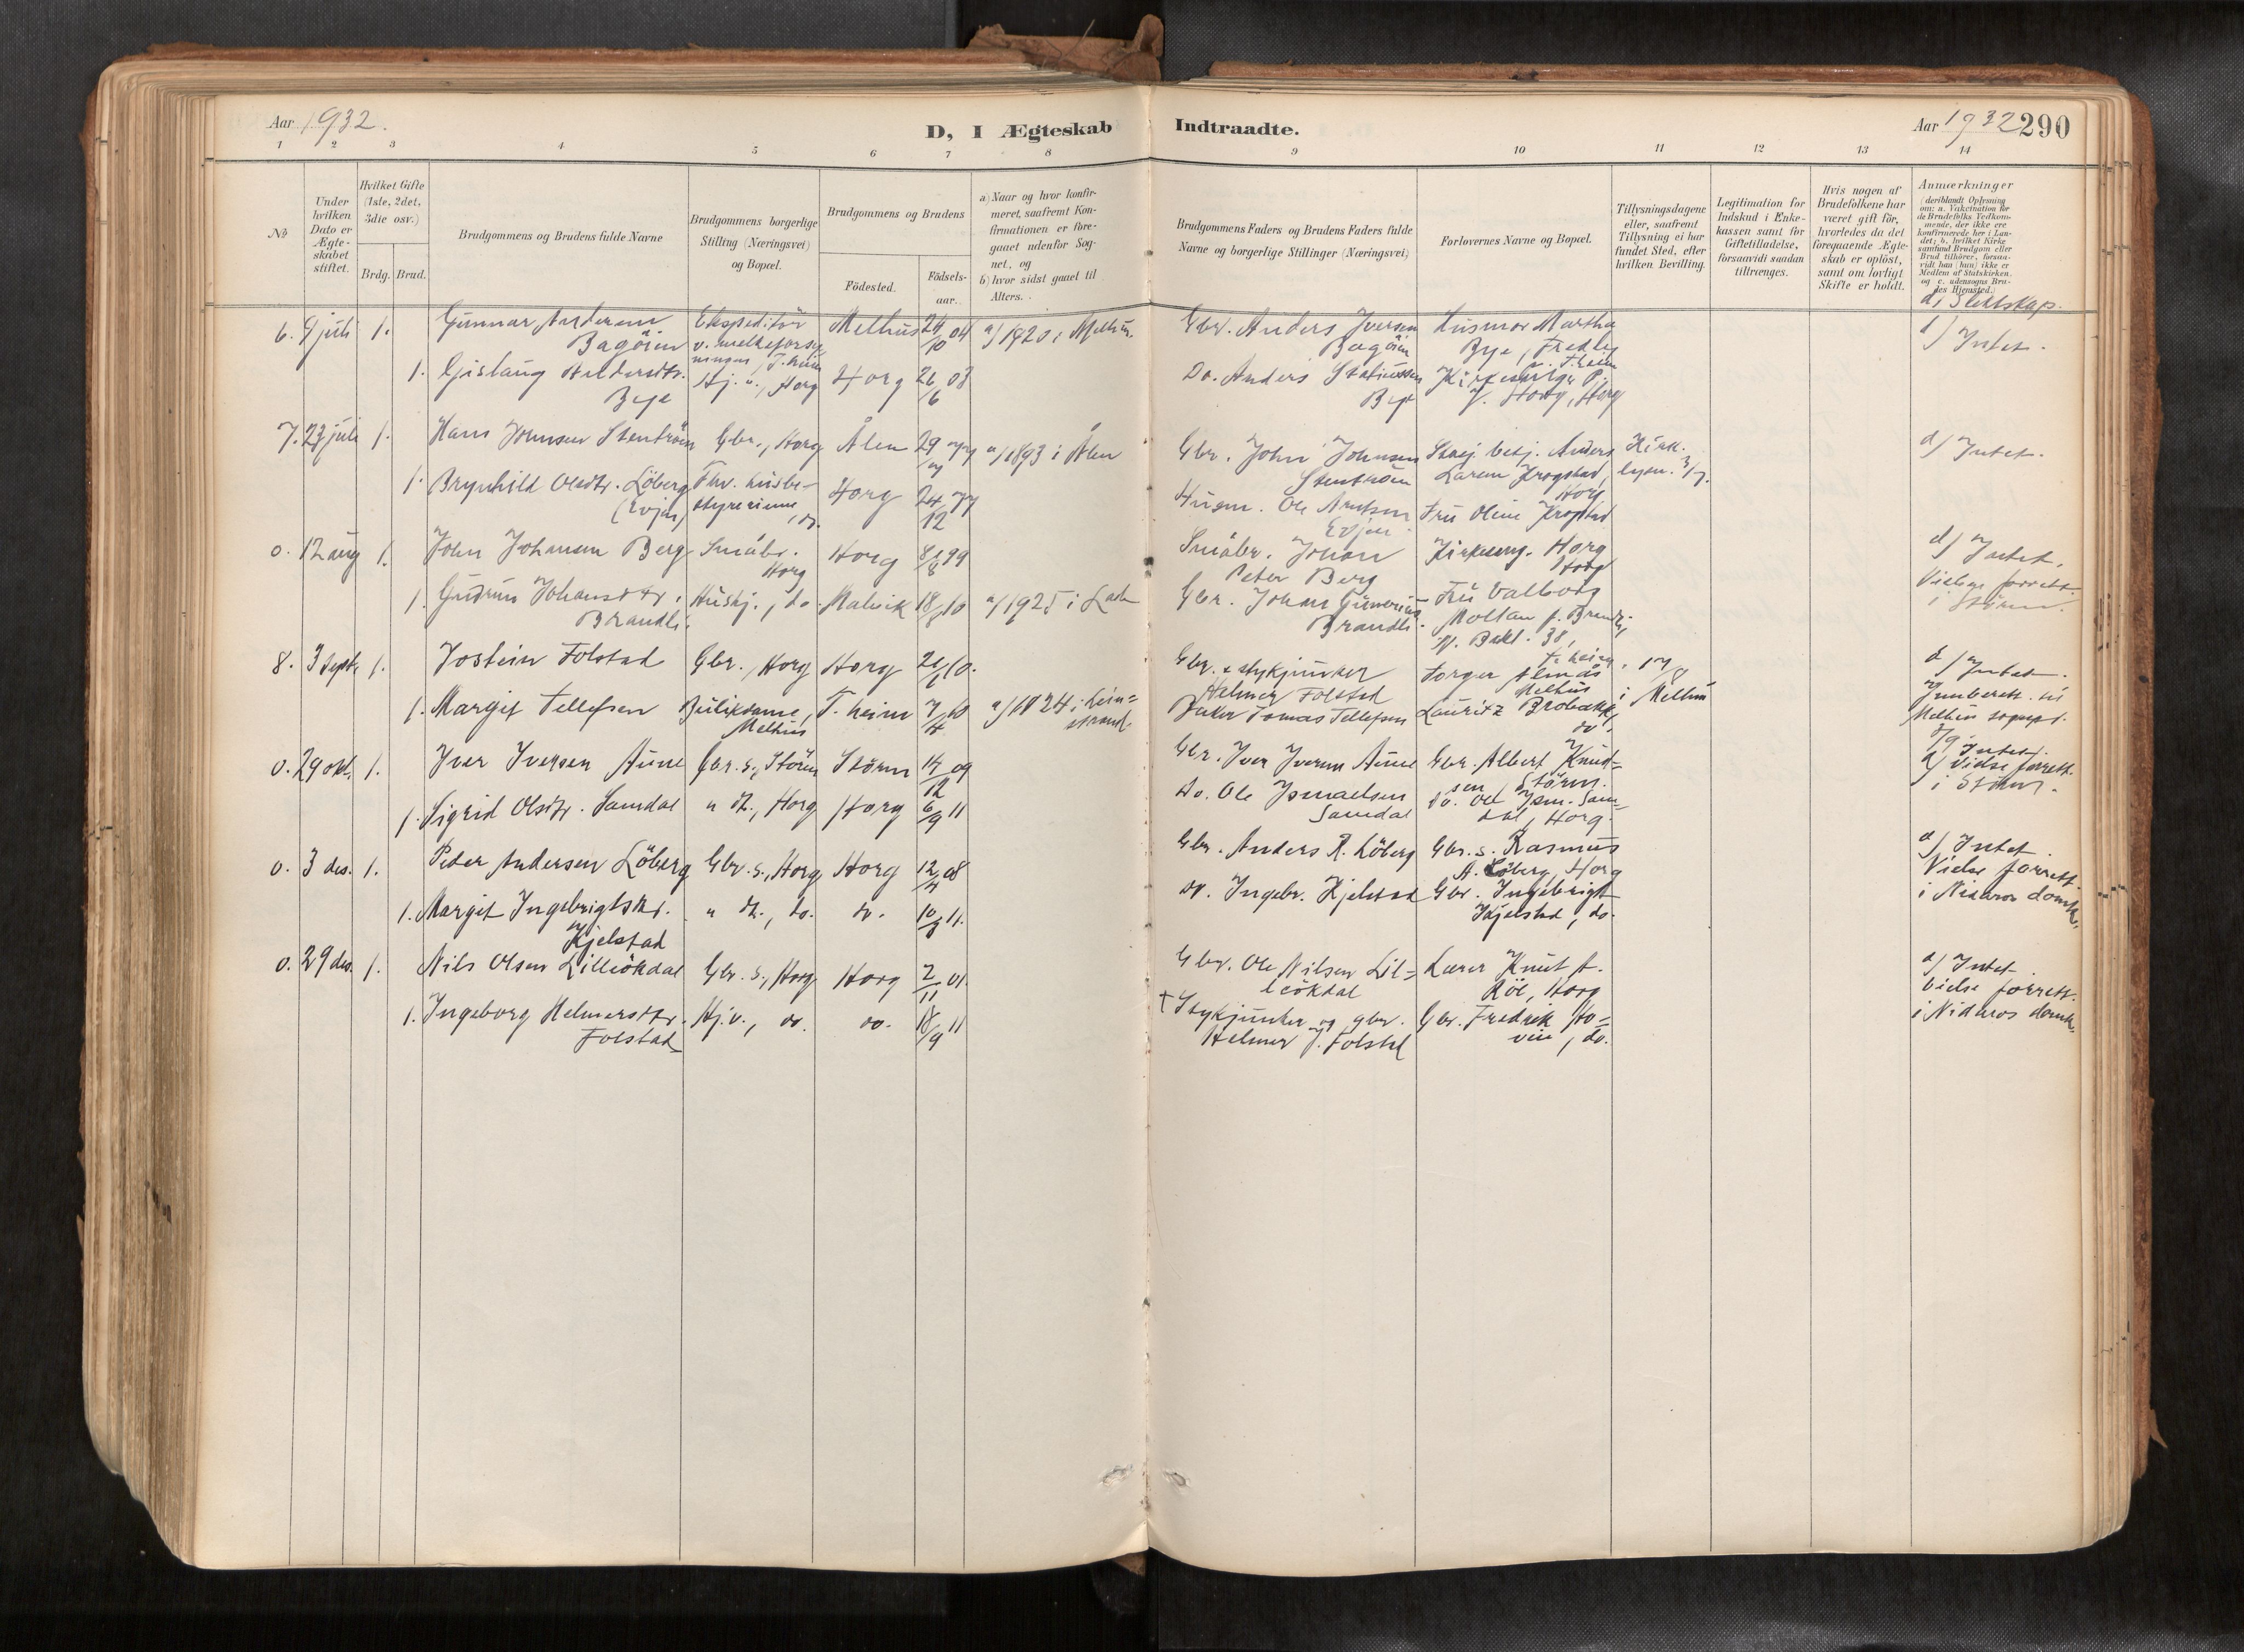 Aar 1932.
D, I Ægteskab
Indtraadte.
Aar 1932 290
1 2 3 4 5 6 7 8 9 10 11 12 13 14
No
Under
hvilken
Dato er
Ægte-
skabet
stiftet.
Hvilket Gifte
(1ste, 2det,
3die osv.)
Brdg. Brud.
Brudgommens og Brudens fulde Navne
Brudgommens borgerlige
Stilling (Næringsvei)
og Bopæl.
Brudgommens og Brudens
Födested.
Födsels-
aar.
a) Naar og hvor konfir-
meret, saafremt Kon-
firmationen er fore-
gaaet udenfor Sog-
net, og
b) hvor sidst gaaet til
Alters.
Brudgommens Faders og Brudens Faders fulde
Navne og borgerlige Stillinger (Næringsvei)
Forlovernes Navne og Bopæl.
Tillysningsdagene
eller, saafremt
Tillysning ei har
fundet Sted, efter
hvilken Bevilling.
Legitimation for
Indskud i Enke-
kassen samt for
Giftetilladelse,
forsaavidt saadan
tiltrænges.
Hvis nogen af
Brudefolkene har
været gift för,
hvorledes da det
foregaaende Ægte-
skab er oplöst,
samt om lovligt
Skifte er holdt.
Anmærkninger
(deriblandt Oplysning
om: a. Vakcination for
de Brudefolks Vedkom-
mende, der ikke ere
konfirmerede her i Lan-
det; b. hvilket Kirke
samfund Brudgom eller
Brud tilhører, forsaa-
vidt han (hun) ikke er
Medlem af Statskirken,
og c. udensogns Bru-
des Hjemsted.)
d, Slektskap.
6. 9 juli 1. Gunnar Andersen
Bagöien
Ekspeditör
v. melkeforsy-
ningen, T.heim
Melhus 24/10 04 a/ 1920 i Melhus
Gbr. Anders Iversen
Bagöien
Husmor Martha
Bye, Fredly
p. T.heim
d/ Intet.
1. Gislaug Andersdtr.
Bye
Hj. v., Horg Horg 26/6 03
Do. Anders
Bye
Kirkesanger P.
J. Horg, Horg
7. 23 juli 1. Hans Johnsen Stenbröen Gbr., Horg Ålen 29 77 a/ 1893 i Ålen
Gbr. John Johnsen
Stenbröen
Anders
Larsen Krogstad,
Horg
Kirk.
lysn. 3/7.
d/ Intet.
1. Brynhild Olsdtr. Löberg
(Evjen)
Fhv. husbe-
styrerinne, do.
Horg 24/12 77
Husm. Ole Arntsen
Evjen
Fru Oline Krogstad
o. 12 aug 1. John Johansen Berg Småbr.
Horg
Horg 8/8 99
Småbr. Johan
Peter Berg
Kirkesang. Horg
Horg
d/ Intet.
Vielse forrett.
i Stören.
1. Gudrun Johansdtr.
Brandli.
Hushj., do Malvik 18/8 10 a/ 1925 i Lade
Gbr. Johan Gunerius
Brandli.
Fru Valborg
Moltau f. Brandli,
Bakl. 38,
T.heim
8. 3 sept. 1. Jostein Folstad Gbr., Horg Horg 21/1 10.
Gbr. & stykjunker
Helmer Folstad
Torger Almås
Melhus
17/8
i Melhus
d/ Intet.
Innberett. til
Melhus sognepr.
5/9
1. Margit Tellefsen Butikdame,
Melhus
T.heim 7/4 10 a/ 1924 i Lein-
strand.
Baker Tomas Tellefsen Lauritz Brobakk,
do.
o. 29 okt. 1. Iver Iversen Aune Gbr. s., Stören Stören 14/12 09
Gbr. Iver Iversen Aune Gbr. Albert Knud-
sen, Stören.
d/ Intet.
Vielse forrett.
i Stören.
1. Sigrid Olsdtr. Samdal " d., Horg Horg 6/9 11
Do. Ole Ismaelsen
Samdal
do. Ole Ism. Sam-
dal, Horg.
o. 3 des. 1. Peder Andersen Löberg Gbr. s., Horg Horg 12/4 08
Gbr. Anders R. Löberg Gbr. s. Rasmus
A. Löberg, Horg
d/ Intet.
Vielse forrett.
i Nidaros domk.
1. Margit Ingebrigtsdtr.
Kjelstad
" d., do. do. 10/8 11.
do. Ingebr. Kjelstad Gbr. Ingebrigt
Kjelstad, do.
o. 29 des. 1. Nils Olsen Lilleökdal Gbr. s., Horg Horg 2/11 01.
Gbr. Ole Nilsen Lil-
leökdal
Lærer Knut A.
Röe, Horg
d/ Intet.
Vielse forrett.
i Nidaros domk.
1. Ingeborg Helmersdtr.
Folstad
Hj. v., do. do. 18/9 11
† Stykjunker og gbr.
Helmer J. Folstad
Gbr. Fredrik Ho-
vin, do.